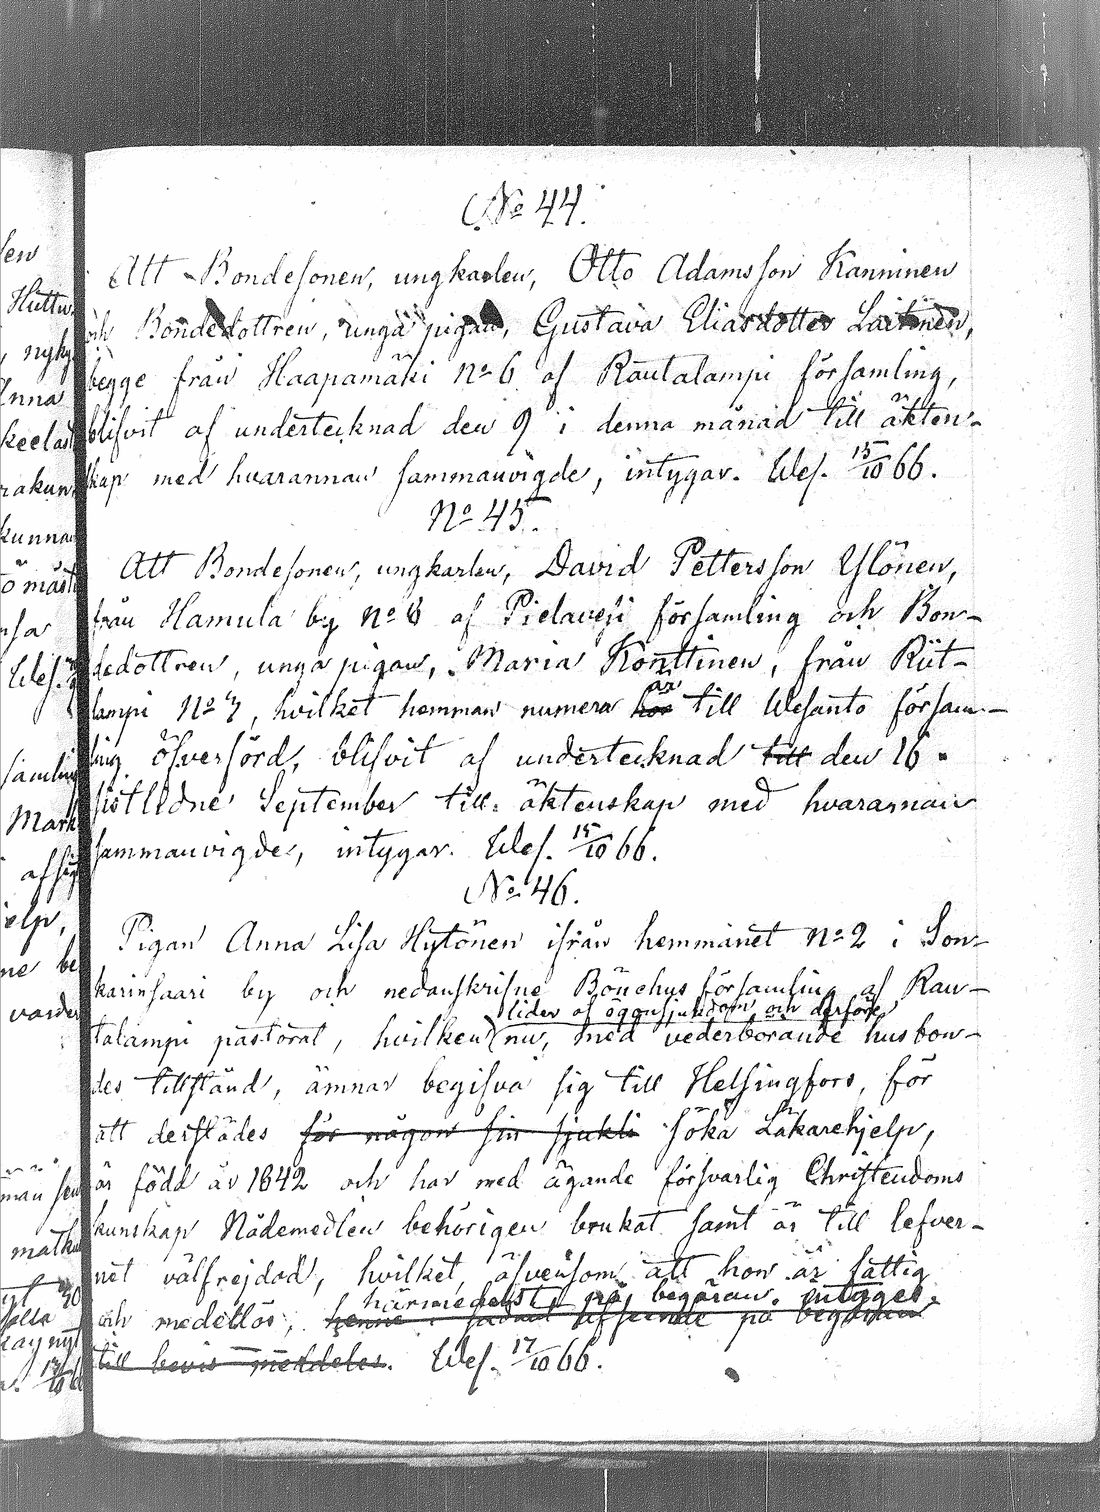 No 44.
Att Bondesonen, ungkarlen, Otto Adamsson Kanninen
och Bondedottren, unga pigan, Gustava Eliasdotter Laitinen,
begge från Haapamäki No 6 af Rautalampi församling,
blifvit af undertecknad den 9 i denna månad till äkten-
skap med hvarannan sammanvigde, intygar. Wes. 15/10 66.
No 45.
Att Bondesonen, ungkarlen, David Pettersson Ylönen,
från Hamula by No 8 af Pielavesi församling och Bon-
dedottren, unga pigan, Maria Konttinen, från Riit-
är
lampi No 7, hvilket hemman numera har till Wesanto försam-
ling öfverförd, blifvit af undertecknad till den 16
sistledne September till äktenskap med hvarannan
sammanvigde, intygar. Wes. 15/10 66.
No 46.
Pigan Anna Lisa Hytönen ifrån hemmanet No 2 i Son-
karinsaari by och nedanskrifne Bönehus församling af Rau-
lider af ögonsjukdom och derföre
talampi pastorat, hvilken nu, med vederbörande husbon-
des tillstånd, ämnar begifva sig till Helsingfors, för
att derstädes för någon sin sjukli söka Läkarehjelp,
är född år 1842 och har med ägande försvarlig Christendoms
kunskap Nådemedlen behörigen brukat samt är till lefver-
net välfrejdad, hvilket, äfvensom att hon är fattig
härmedelst, på begäran, intyges.
och medellös, henne i sådant afseende på begäran
till bevis meddelas. Wes. 17/10 66.